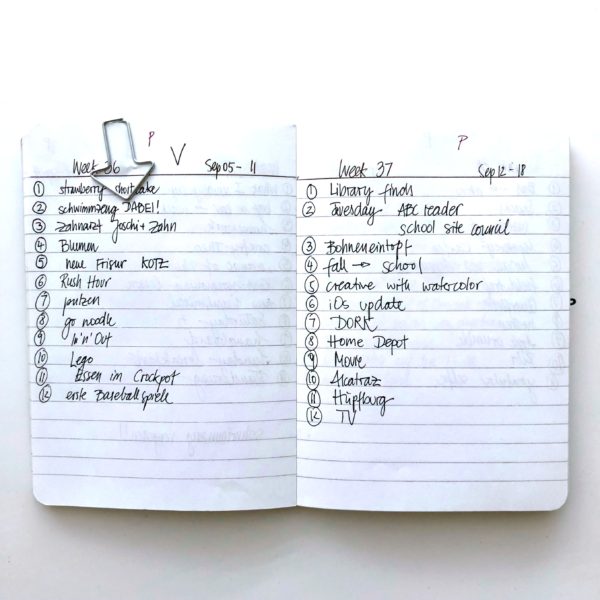 P
V
Week 36 Sep 05 - 11
① strawberry shortcake
② schwimmzeug DABEI!
③ Zahnarzt Joschi + Zahn
④ Blumen
⑤ neue Frisur KOTZ
⑥ Rush Hour
⑦ putzen
⑧ go noodle
⑨ In'n'Out
⑩ Lego
⑪ Essen im Crockpot
⑫ erste Baseballspiele
P
Week 37 Sep 12 - 18
① Library finds
② Tuesday ABC reader
school site council
③ Bohneneintopf
④ fall → school
⑤ creative with watercolor
⑥ iOs update
⑦ DORK
⑧ Home Depot
⑨ Movie
⑩ Alcatraz
⑪ Hüpfburg
⑫ TV